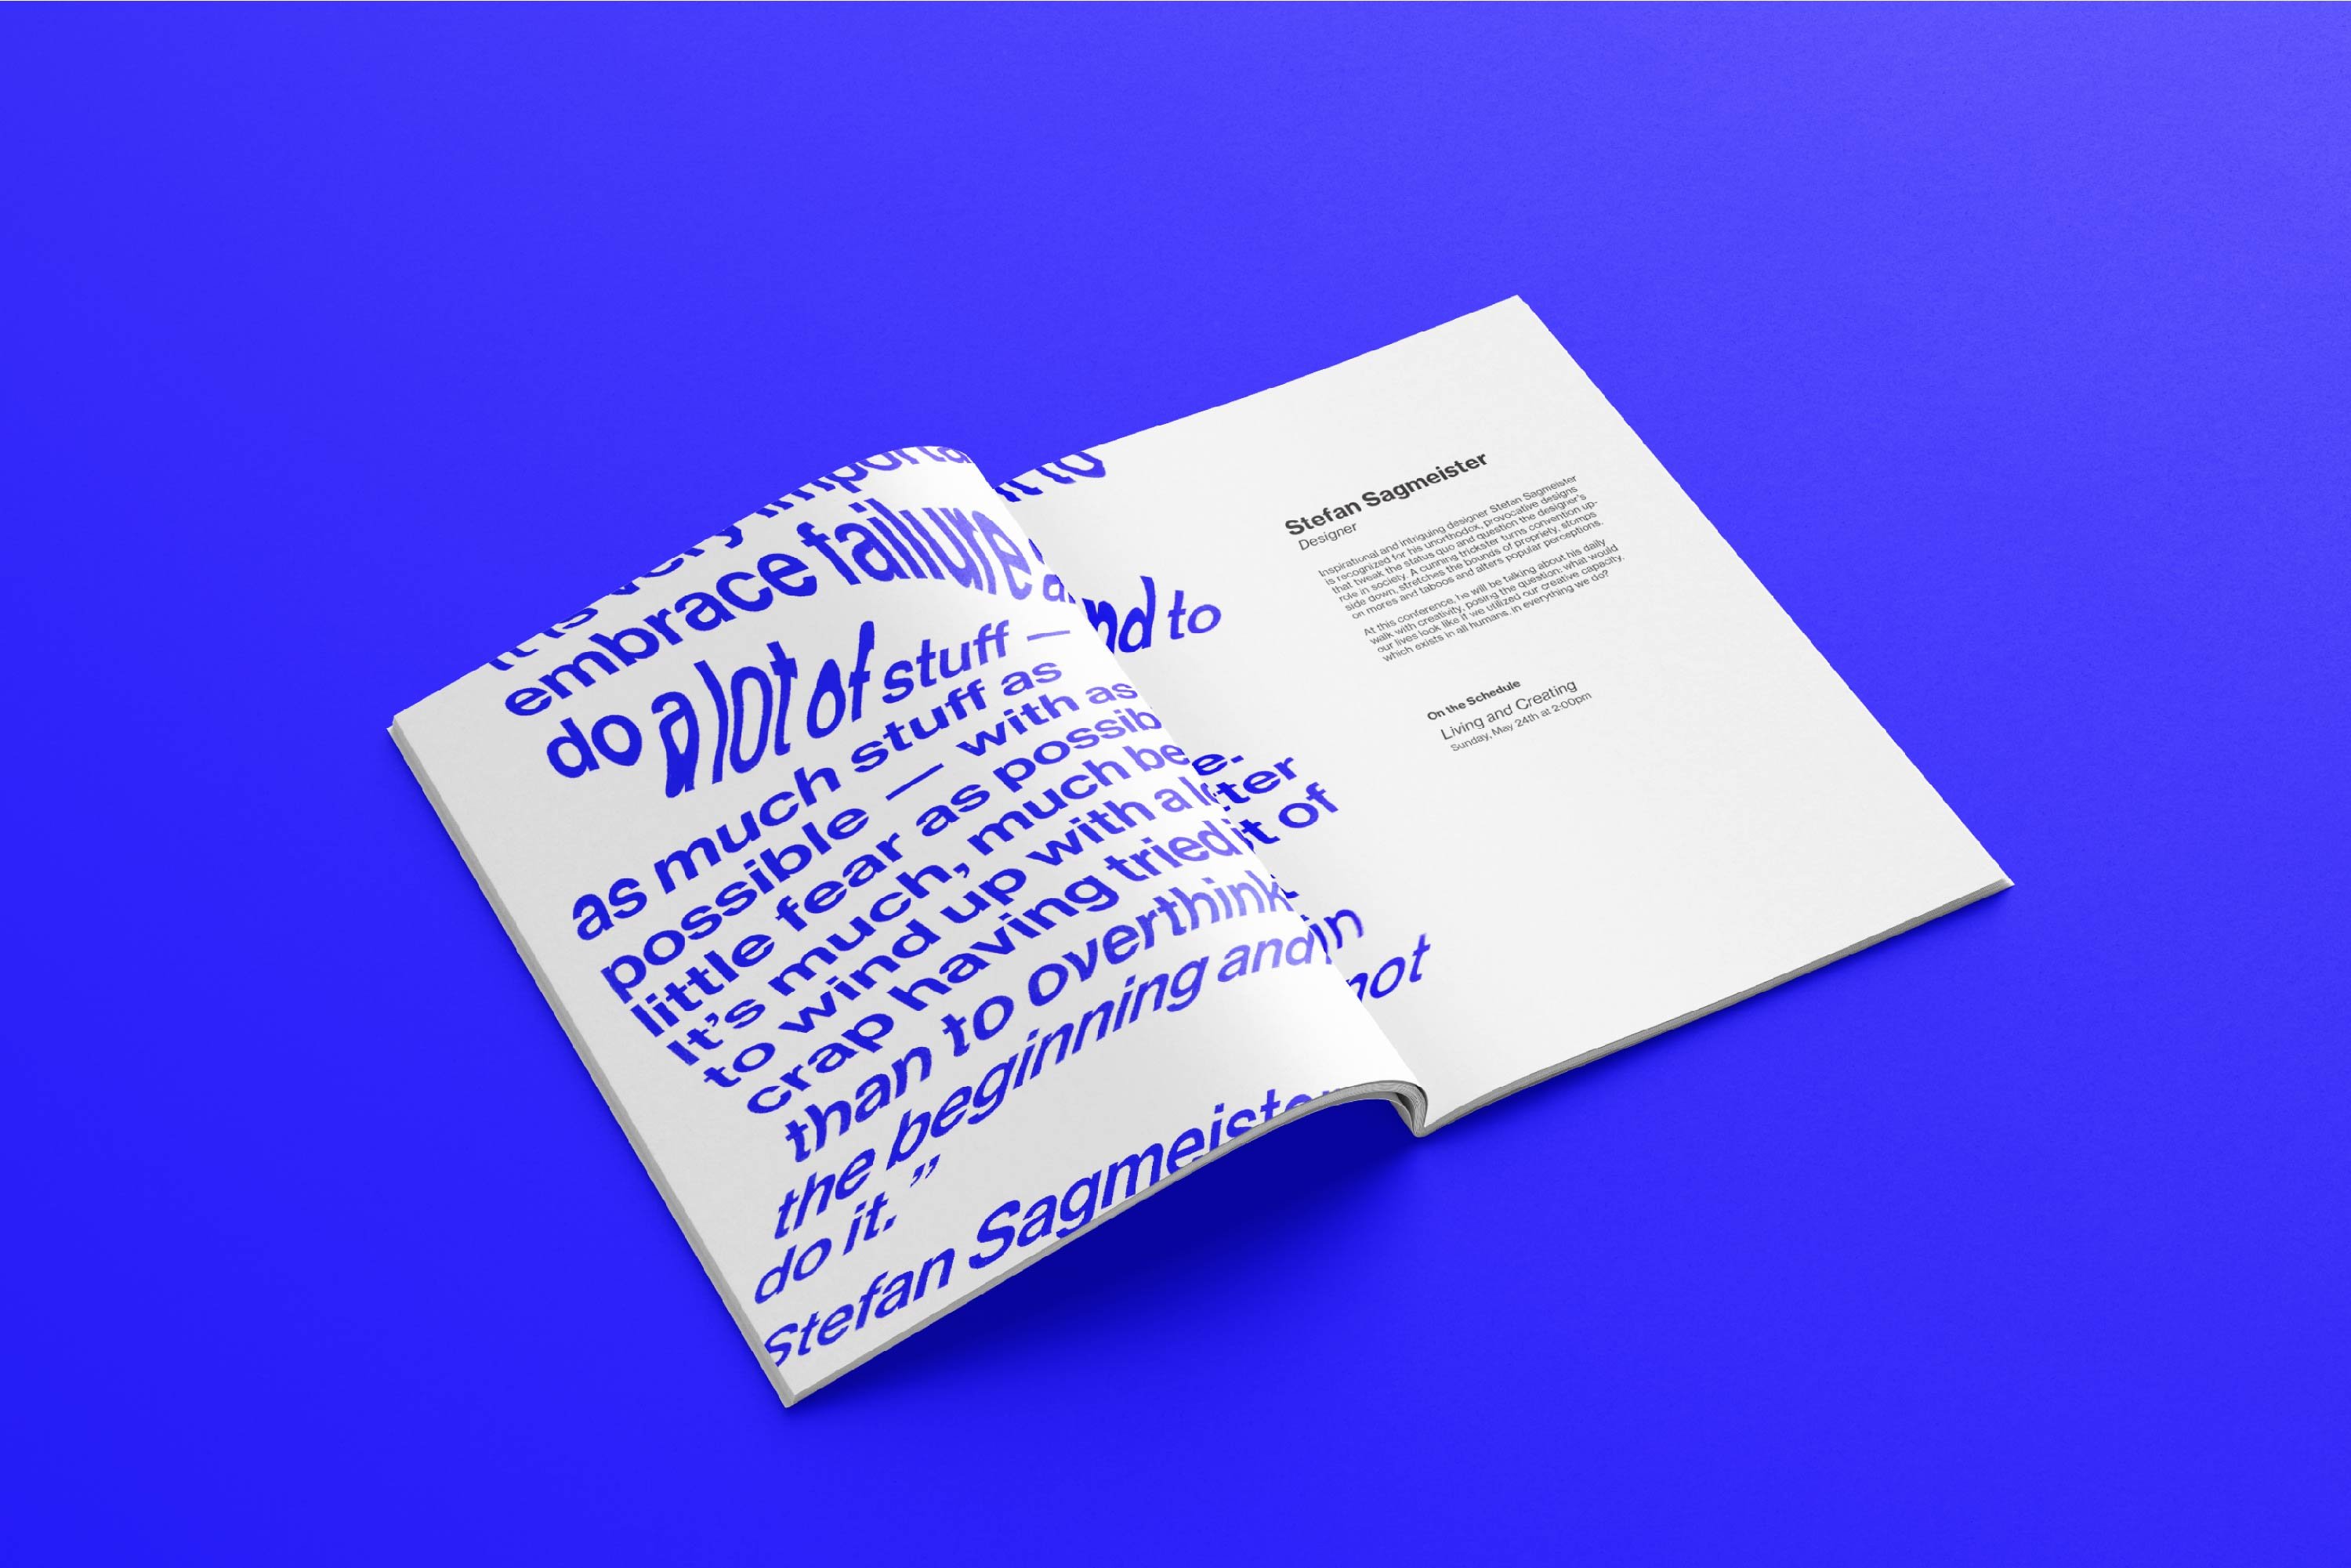 it is very important to
embrace failure and to
do a lot of stuff —
as much stuff as
possible — with as
little fear as possible.
It's much, much better
to wind up with a lot of
crap having tried it
than to overthink in
the beginning and not
do it.”
Stefan Sagmeister
Stefan Sagmeister
Designer
Inspirational and intriguing designer Stefan Sagmeister
is recognized for his unorthodox, provocative designs
that tweak the status quo and question the designer's
role in society. A cunning trickster turns convention up-
side down, stretches the bounds of propriety, stomps
on mores and taboos and alters popular perceptions.
At this conference, he will be talking about his daily
walk with creativity, posing the question: what would
our lives look like if we utilized our creative capacity,
which exists in all humans, in everything we do?
On the Schedule
Living and Creating
Sunday, May 24th at 2:00pm